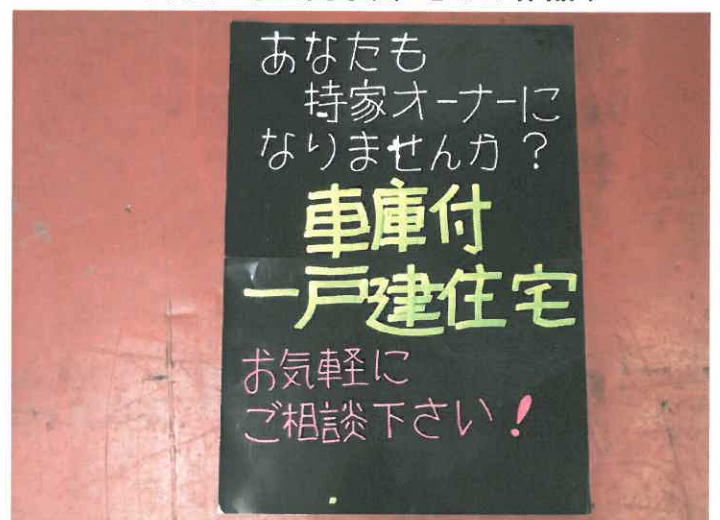 あなたも
持家オーナーに
なりませんか？
車庫付
一戸建住宅
お気軽に
ご相談下さい！